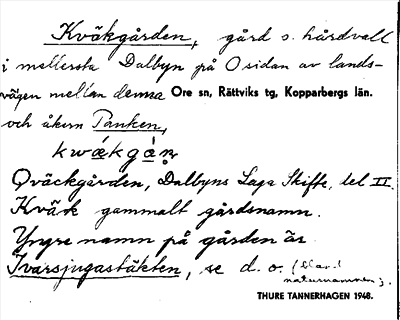 Kväkgården, gård o. hårdvall
i mellersta Dalbyn på O sidan av lands-
vägen mellan denna Ore sn, Rättviks tg, Kopparbergs län.
och åkern Panken,
kwǽkgànn
Qväckgården, Dalbyns Laga Skifte, del II.
Kväk gammalt gårdsnamn.
Yngre namn på gården är
Ivarsjugastäkten, se d. o. (bland
naturnamnen).
THURE TANNERHAGEN 1948.